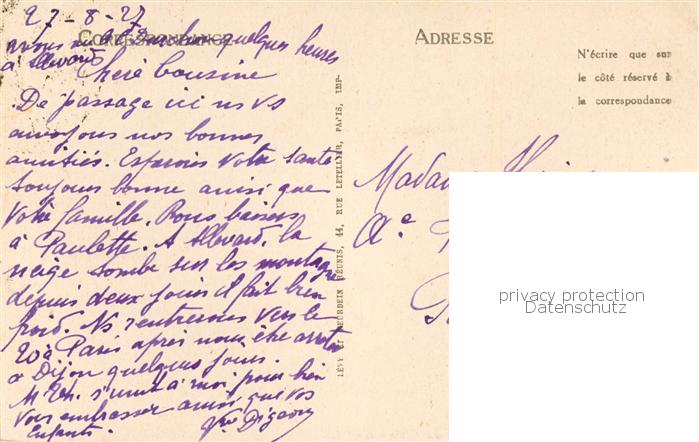 27-8-27
CORRESPONDANCE
quelques heures
à Allevard
Chère Cousine
De passage ici ns vs
envoyons nos bonnes
amitiés. Espérons votre santé
toujours bonne ainsi que
votre famille. Bons baisers
à Paulette. A Allevard, la
neige tombe sur les montagnes
depuis deux jours il fait bien
froid. Ns rentrerons vers le
20 à Paris après nous être arrêtés
à Dijon quelques jours.
M Th. s'unit à moi pour bien
vous embrasser ainsi que vos
Enfants.
Vve Digeon
LÉVY ET NEURDEIN RÉUNIS, 44, RUE LETELLIER, PARIS, IMP.
ADRESSE
N'écrire que sur
le côté réservé à
la correspondance
privacy protection
Datenschutz